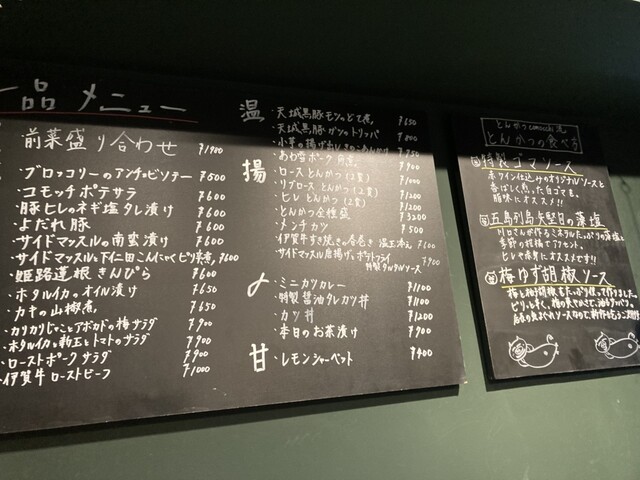 一品メニュー
前菜盛り合わせ ¥1900
・ブロッコリーのアンチョビソテー ¥500
・コモッチポテサラ ¥600
・豚ヒレのネギ塩タレ漬け ¥600
・よだれ豚 ¥600
・サイドマッスルの南蛮漬け ¥600
・サイドマッスルと下仁田こんにゃくピリ辛煮 ¥600
・姫路蓮根きんぴら ¥600
・ホタルイカのオイル漬け ¥650
・カキの山椒煮 ¥650
・カリカリじゃことアボカドの梅サラダ ¥900
・ホタルイカと新玉とトマトのサラダ ¥900
・ローストポークサラダ ¥900
・伊賀牛ローストビーフ ¥1000
温
・天城黒豚モツのどて煮 ¥650
・天城黒豚ガツのトリッパ
・小芋の揚げ出し
・あわなポーク角煮 ¥900
揚
・ロースとんかつ(2貫) ¥1000
・リブロースとんかつ(2貫) ¥1200
・ヒレとんかつ(2貫) ¥1200
・とんかつ全種盛 ¥3200
・メンチカツ ¥500
・伊賀牛すき焼きの春巻き 温玉添え ¥600
・サイドマッスル唐揚げとポテトフライ
特製タルタルソース ¥900
〆
・ミニカツカレー ¥1100
・特製醤油タレカツ丼 ¥1100
・カツ丼 ¥1200
・本日のお茶漬け ¥900
甘
・レモンシャーベット ¥400
とんかつcomocchi流
とんかつの食べ方
特製ゴマソース
赤ワイン仕込みのオリジナルソースと
香ばしく煎った白ゴマを。
豚味にオススメ!!
五島列島矢堅目の藻塩
川口さんが作るミネラルたっぷりの藻塩と
季節の柑橘でアクセント。
ヒレや赤身にオススメです!!
梅ゆず胡椒ソース
梅と柚子胡椒をたっぷり使って作りました。